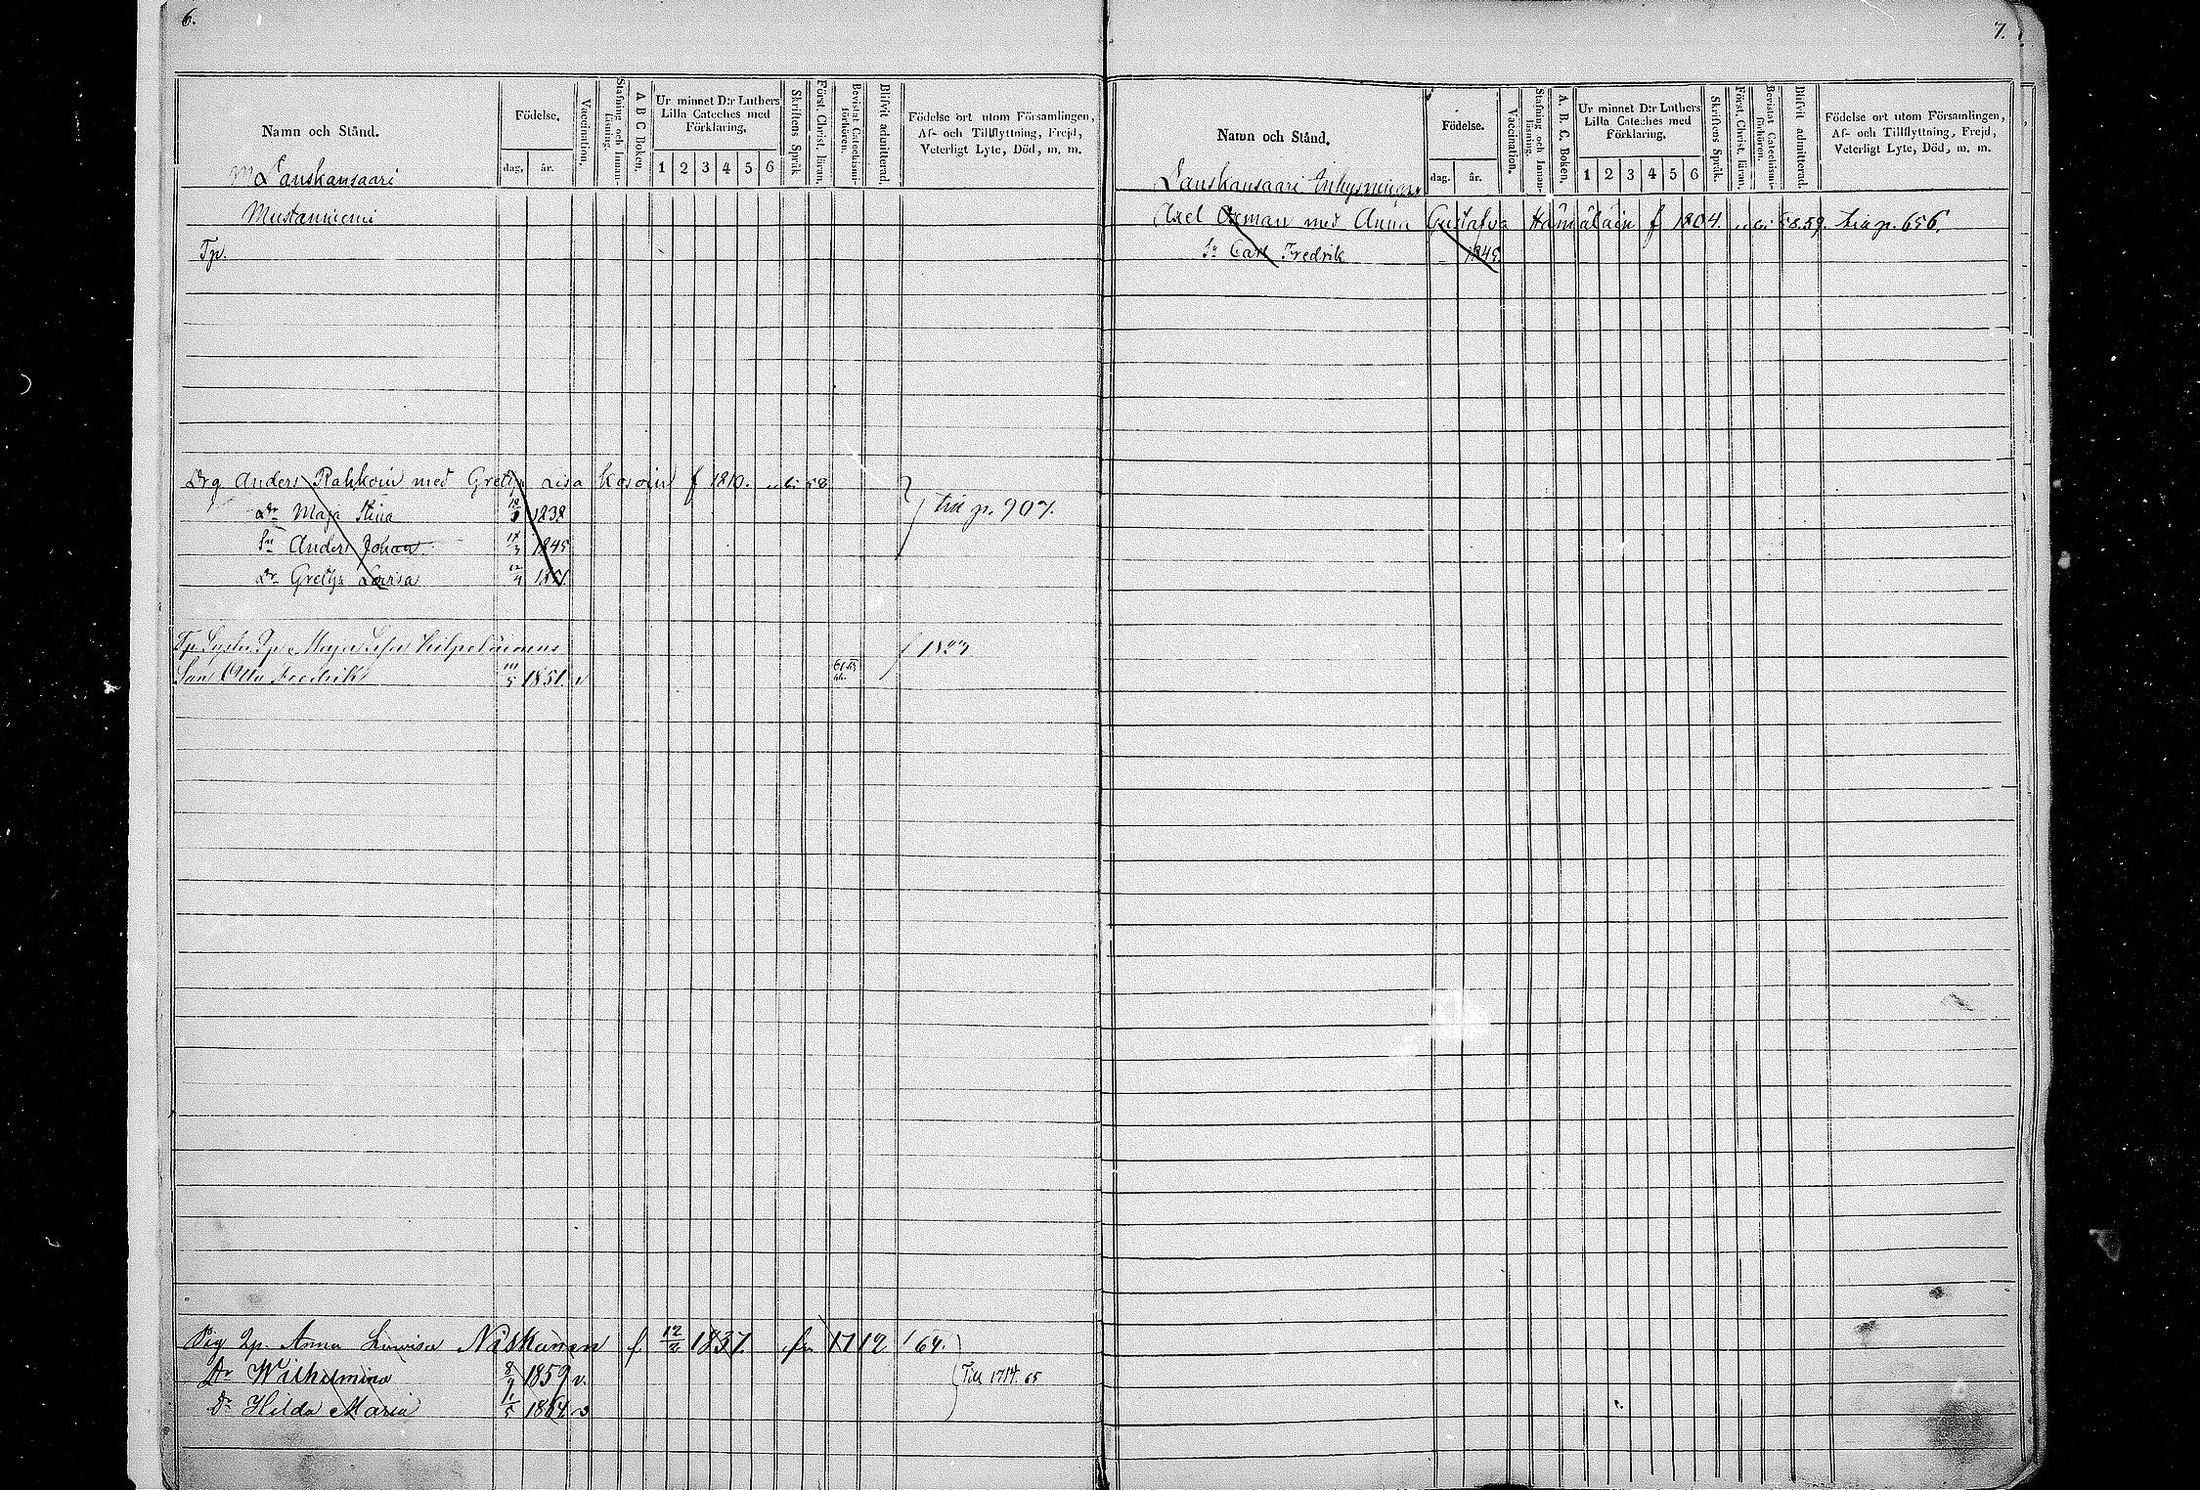 6.
Namn och Stånd.
Födelse.
dag, år.
Vaccination.
Stafning och Innanläsning.
A B C Boken.
Ur minnet D:r Luthers Lilla Cateches med Förklaring,
1 2 3 4 5 6
Skriftens Språk
Först. Christ. läran.
Bevistat Catechismiförhören.
Blifvit admitterad.
Födelse ort utom Församlingen, Af- och Tillflyttning, Frejd, Veterligt Lyte, Död, m. m.
Lauskansaari
Mustaniemi
Tp.
Drg Anders Rahkoin med Gretha Lisa Kosoin f 1810. 58
Dr Maja Stina 1838
Sn Anders Johan 1845
till p. 907.
Dr Gretha Lovisa 12/4 1851.
Maja Lisa f 1827
Son Otto Fredrik 10/5 1851. v
Pig Anna Lowisa Niskanen f. 12/2 1837. fr 1712 / 64.
Dr Wilhelmina 8/9 1859 v. Till 1714. 65
Dr Hilda Maria 1/5 1864 v
7.
Namn och Stånd.
Födelse.
dag. år.
Vaccination.
Stafning och Innanläsning.
A. B. C. Boken.
Ur minnet D:r Luthers Lilla Cateches med Förklaring,
1 2 3 4 5 6
Skriftens Språk.
Först. Christ. läran.
Bevistat Catechismiförhören.
Blifvit admitterad.
Födelse ort utom Församlingen, Af- och Tillflyttning, Frejd, Veterligt Lyte, Död, m. m.
Lauskansaari Inhysningar
Axel Oxman med Anna Gustafva Hämäläin f 1804. 58.59. till p. 656.
Sn Carl Fredrik 1845.